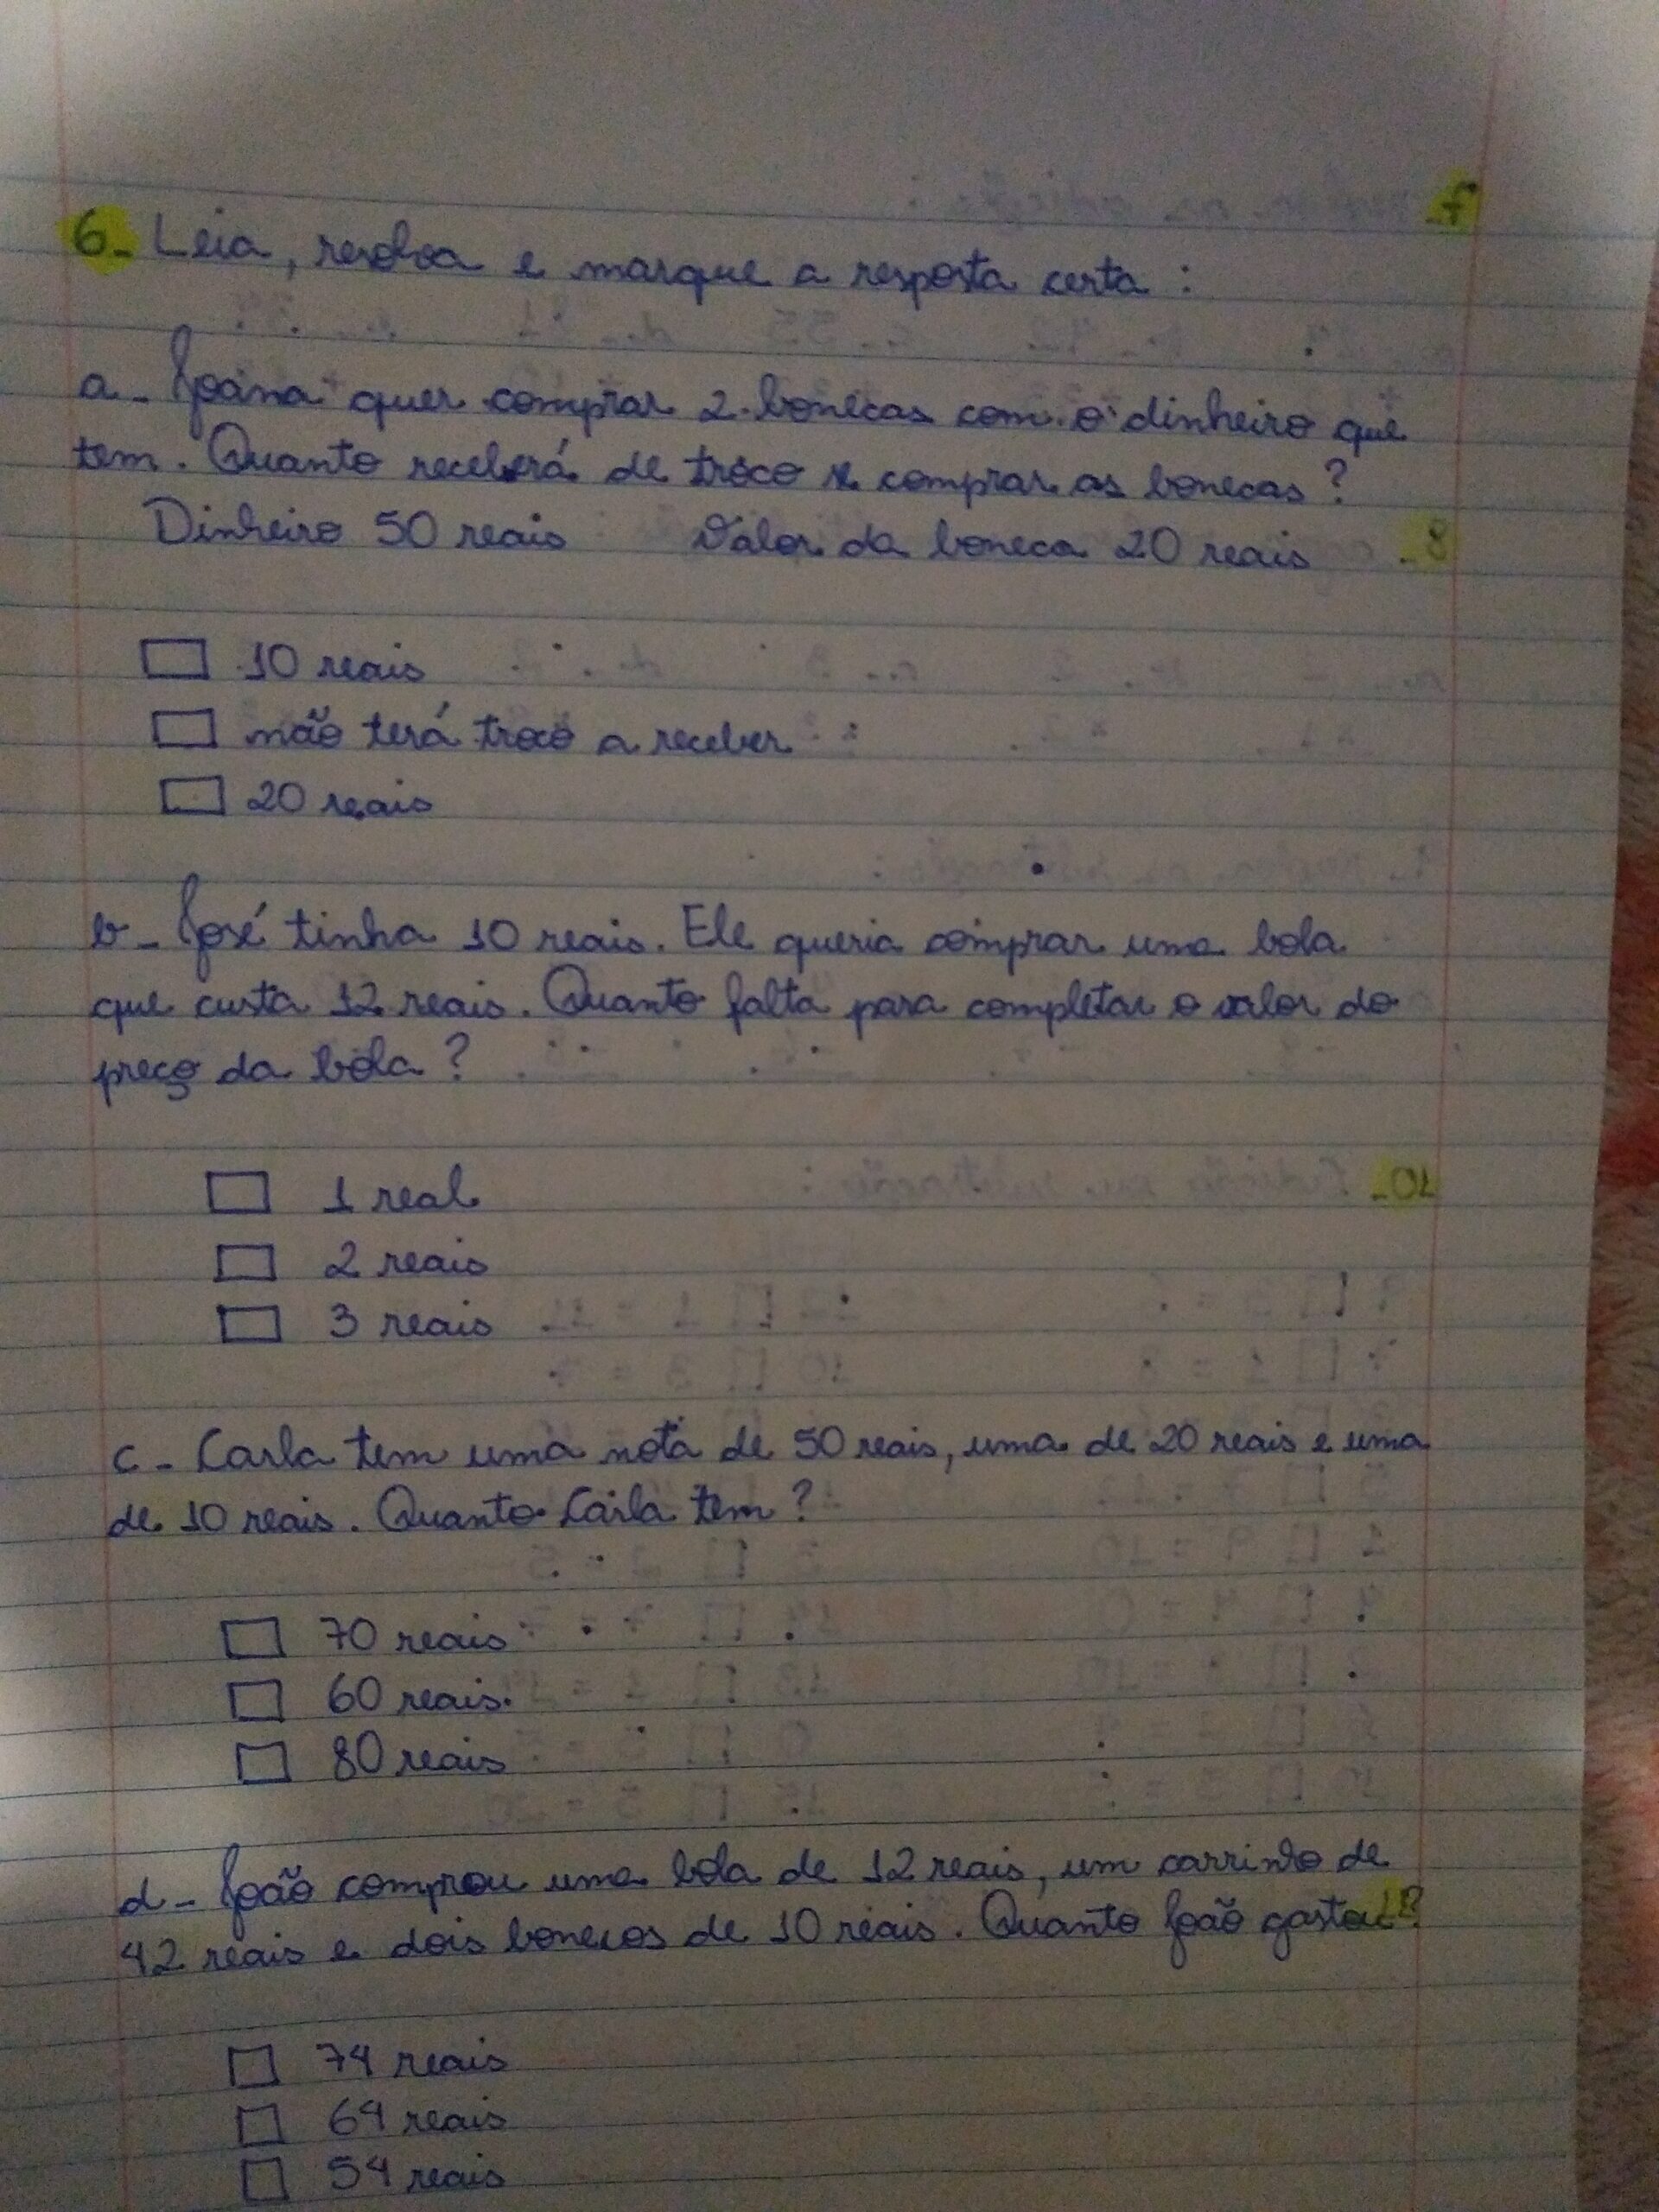 6- Leia, resolva e marque a resposta certa :
a- Joana quer comprar 2 bonecas com o dinheiro que
tem. Quanto receberá de troco se comprar as bonecas ?
Dinheiro 50 reais Valor da boneca 20 reais
10 reais
não terá troco a receber
20 reais
b- José tinha 10 reais. Ele queria comprar uma bola
que custa 12 reais. Quanto falta para completar o valor do
preço da bola ?
1 real
2 reais
3 reais
c- Carla tem uma nota de 50 reais, uma de 20 reais e uma
de 10 reais. Quanto Carla tem ?
70 reais
60 reais
80 reais
d- João comprou uma bola de 12 reais, um carrinho de
42 reais e dois bonecos de 10 reais. Quanto João gastou ?
74 reais
64 reais
54 reais